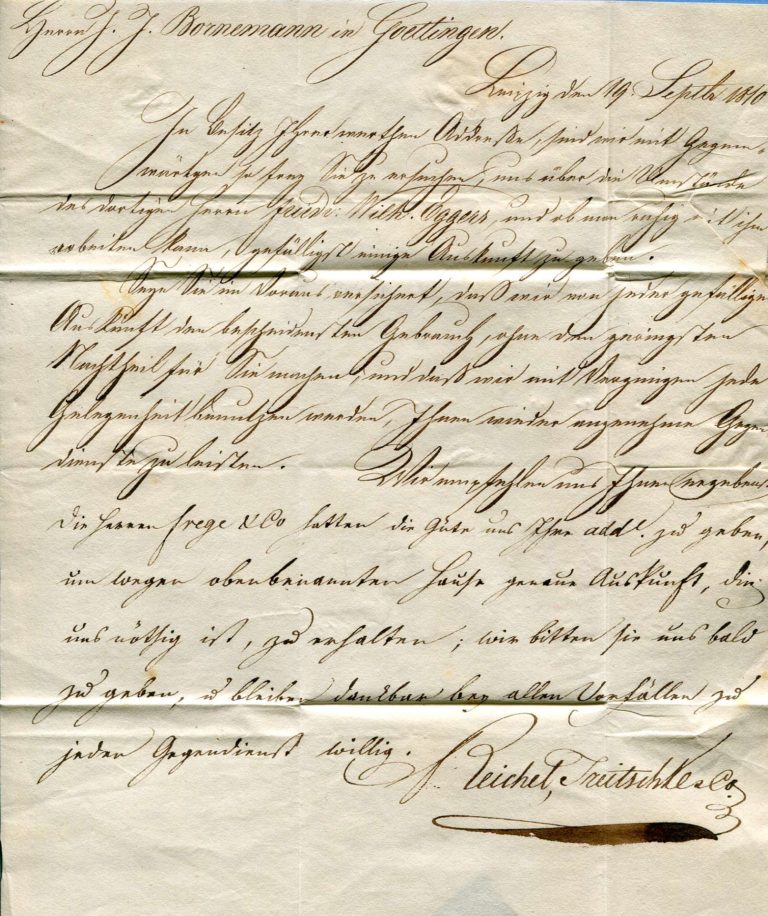 Herrn J. J. Bornemann in Goettingen.
Leipzig den 19. Septbr 1810
In Besitz Ihrer werthen Addresse, sind wir mit Gegen-
wärtgen so frey Sie zu ersuchen, uns über die Umstände
des dortigen Herrn Friedr: Wilh. Eggers, und ob man ruhig mit ihm
arbeiten kann, gefälligst einige Auskunft zu geben.
Seyn Sie im Voraus versichert, daß wir von jeder gefälligen
Auskunft den bescheidensten Gebrauch, ohne den geringsten
Nachtheil für Sie machen, und daß wir mit Vergnügen jede
Gelegenheit benutzen werden, Ihnen wieder angenehme Gegen
dienste zu leisten. Wir empfehlen uns Ihnen ergebenst
Die Herren Frege & Co hatten die Güte uns Ihre add. zu geben,
um wegen obenbenannten Hause genaue Auskunft, die
uns nöthig ist, zu erhalten; wir bitten sie uns bald
zu geben, u bleiben dankbar bey allen Vorfällen zu
jeden Gegendienst willig.
Reichel, Treitschke & Co